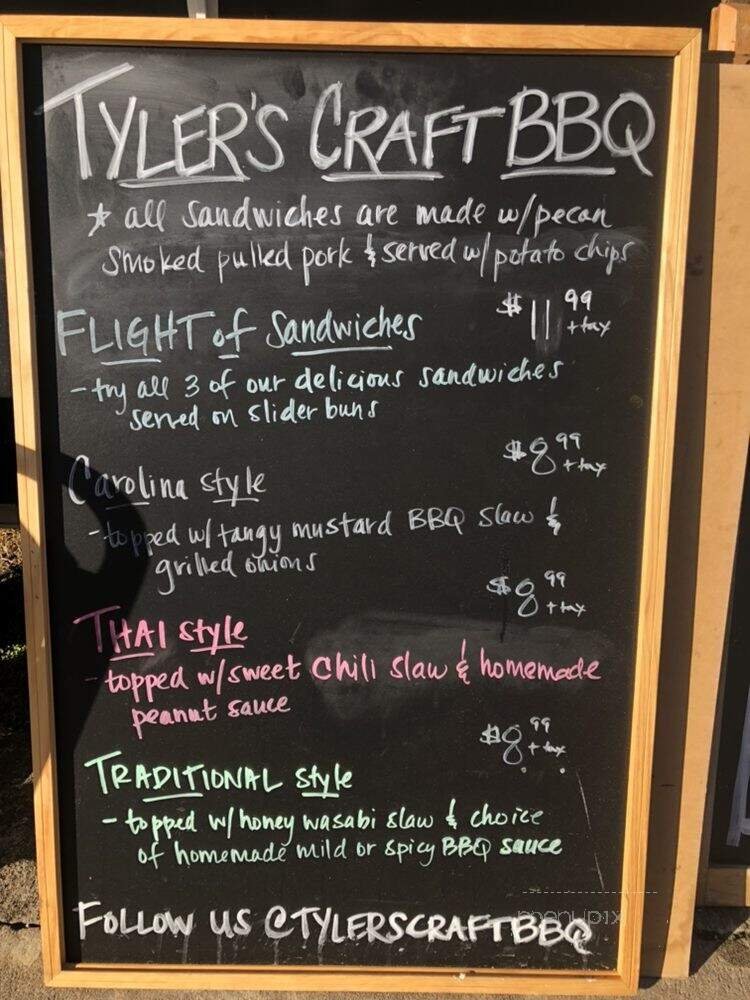 TYLER'S CRAFT BBQ
* all sandwiches are made w/pecan
smoked pulled pork & served w/potato chips
FLIGHT of Sandwiches $11.99 +tax
- try all 3 of our delicious sandwiches
served on slider buns
Carolina style $8.99 +tax
- topped w/tangy mustard BBQ slaw &
grilled onions
THAI style $8.99 +tax
- topped w/sweet chili slaw & homemade
peanut sauce
TRADITIONAL style $8.99 +tax
- topped w/honey wasabi slaw & choice
of homemade mild or spicy BBQ sauce
FOLLOW US @TYLERSCRAFTBBQ
menupix